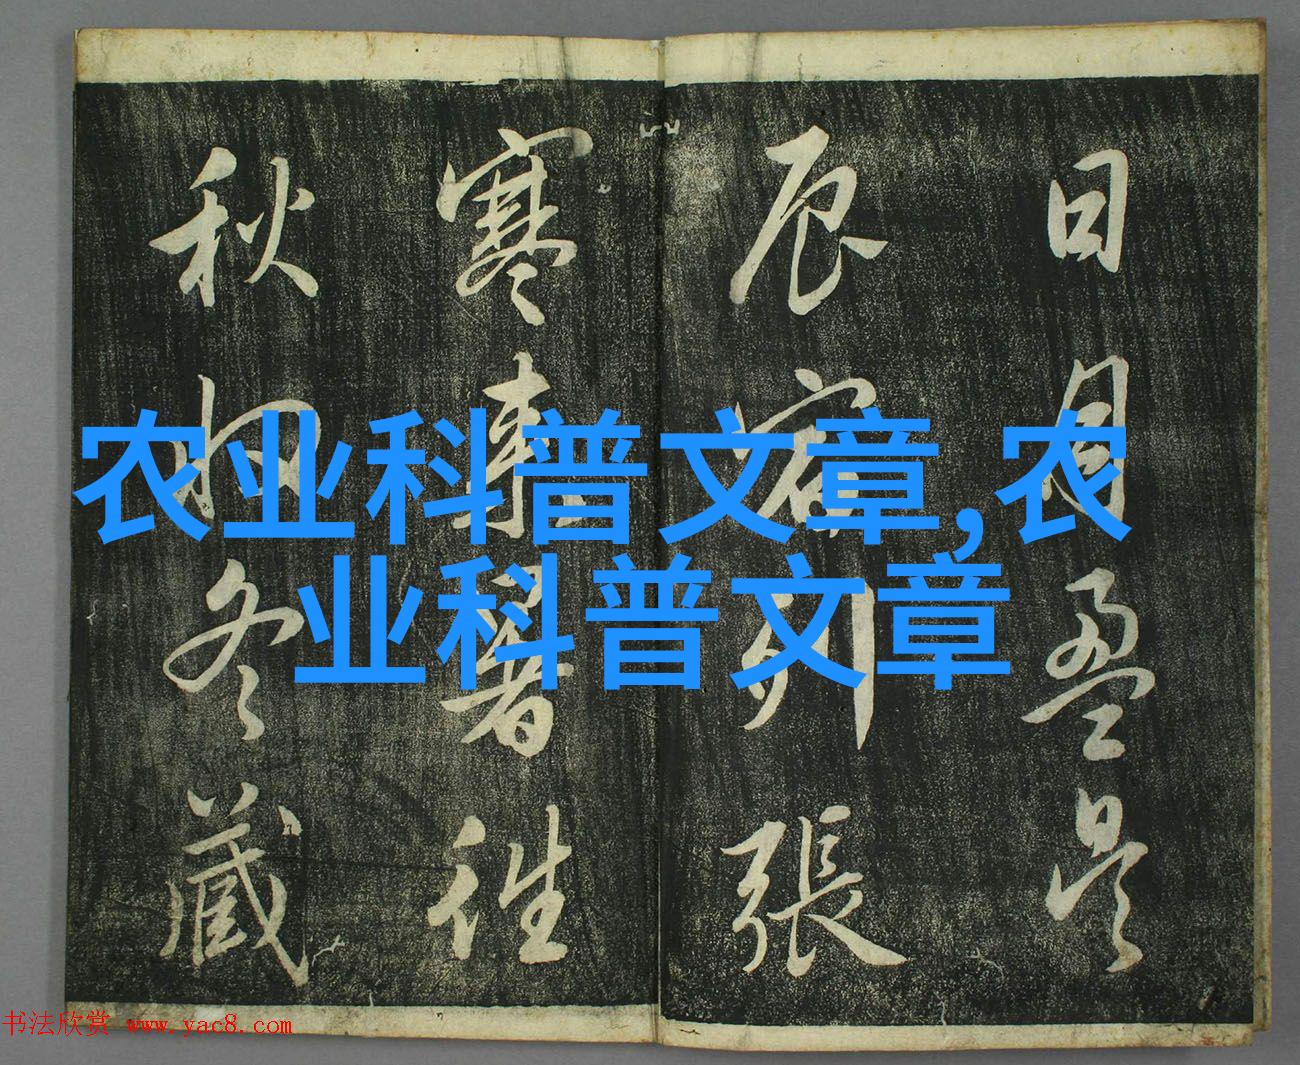 日月盈昃
辰宿列張
寒来暑往
秋收冬藏
农业科普文章,农
业科普文章
书法欣赏 www.yac8.com